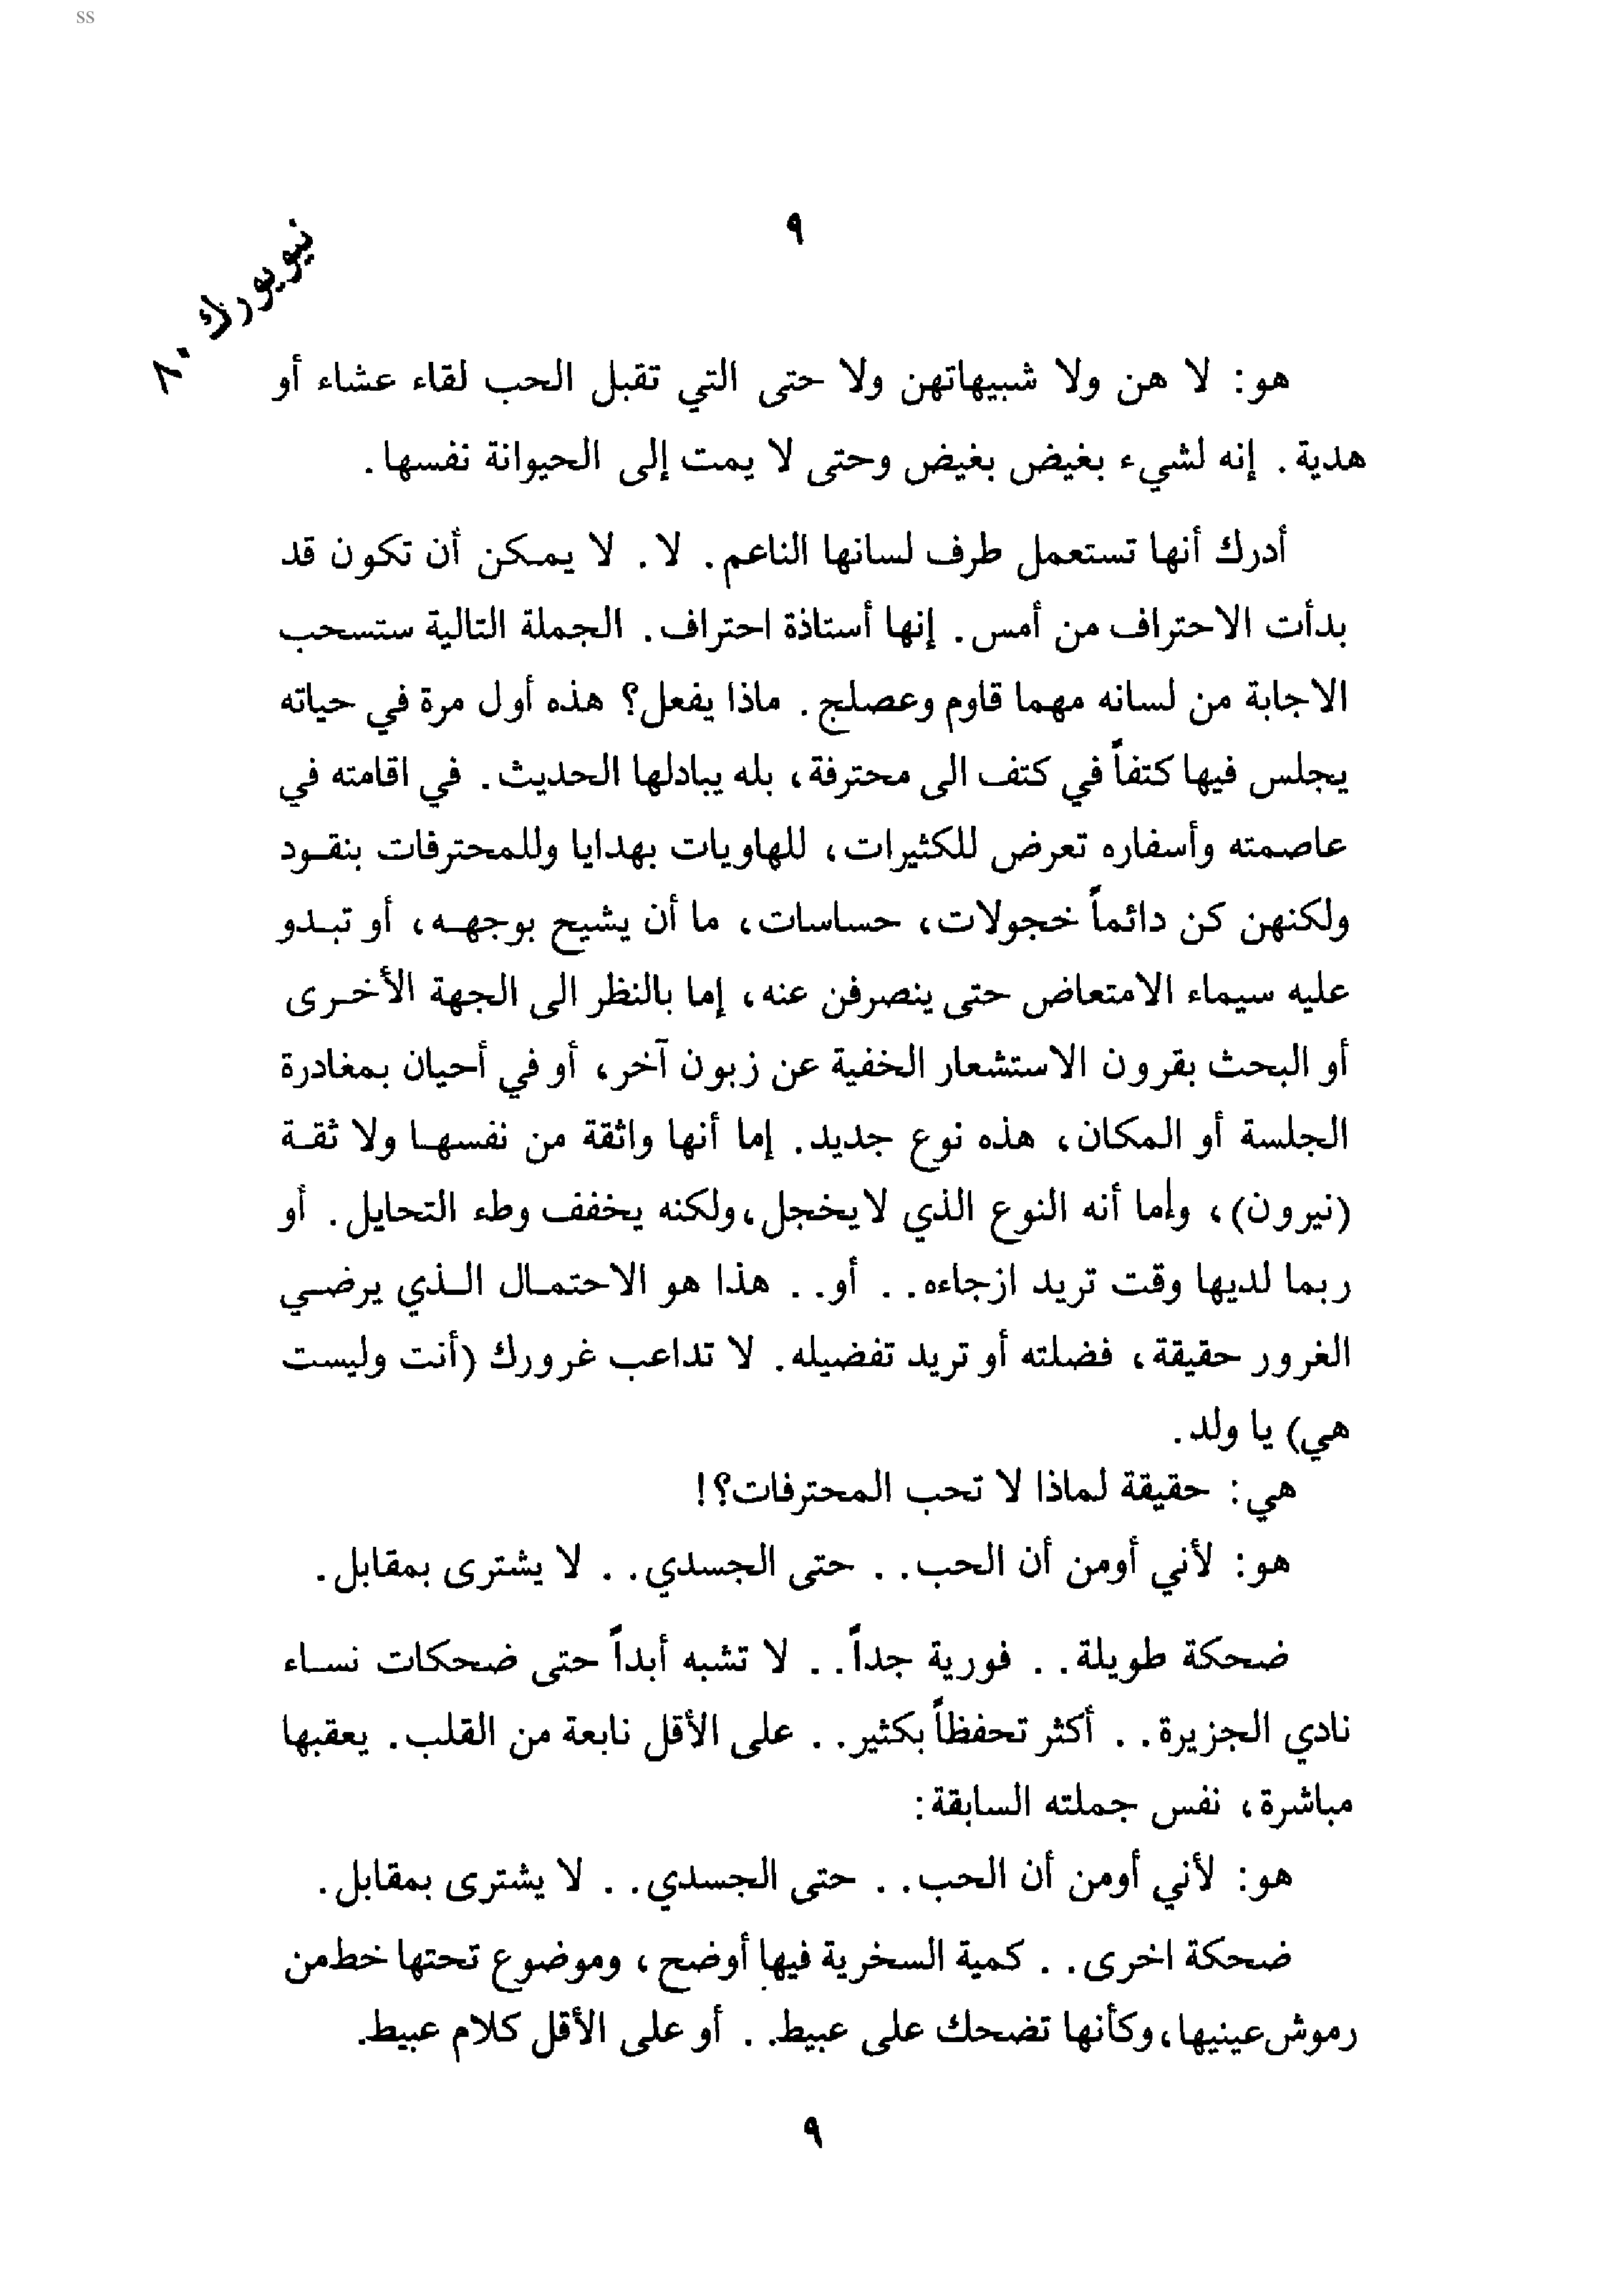 ss
٩
نيويورك ٨٠
هو: لا هن ولا شبيهاتهن ولا حتى التي تقبل الحب لقاء عشاء أو
هدية. إنه لشيء بغيض بغيض وحتى لا يمت إلى الحيوانة نفسها.
أدرك أنها تستعمل طرف لسانها الناعم. لا. لا يمكن أن تكون قد
بدأت الاحتراف من أمس. إنها أستاذة احتراف. الجملة التالية ستسحب
الاجابة من لسانه مهما قاوم وعصلج. ماذا يفعل؟ هذه أول مرة في حياته
يجلس فيها كتفاً في كتف الى محترفة، بله يبادلها الحديث. في اقامته في
عاصمته وأسفاره تعرض للكثيرات، للهاويات بهدايا وللمحترفات بنقود
ولكنهن كن دائماً خجولات، حساسات، ما أن يشيح بوجهه، أو تبدو
عليه سيماء الامتعاض حتى ينصرفن عنه، إما بالنظر الى الجهة الأخرى
أو البحث بقرون الاستشعار الخفية عن زبون آخر، أو في أحيان بمغادرة
الجلسة أو المكان، هذه نوع جديد. إما أنها واثقة من نفسها ولا ثقة
(نيرون)، وأما أنه النوع الذي لا يخجل، ولكنه يخفف وطء التحايل. أو
ربما لديها وقت تريد ازجاءه.. أو.. هذا هو الاحتمال الذي يرضي
الغرور حقيقة، فضلته أو تريد تفضيله. لا تداعب غرورك (أنت وليست
هي) يا ولد.
هي: حقيقة لماذا لا تحب المحترفات؟!
هو: لأني أومن أن الحب.. حتى الجسدي.. لا يشترى بمقابل.
ضحكة طويلة.. فورية جداً.. لا تشبه أبداً حتى ضحكات نساء
نادي الجزيرة.. أكثر تحفظاً بكثير.. على الأقل نابعة من القلب. يعقبها
مباشرة، نفس جملته السابقة:
هو: لأني أومن أن الحب.. حتى الجسدي.. لا يشترى بمقابل.
ضحكة اخرى.. كمية السخرية فيها أوضح، وموضوع تحتها خط من
رموش عينيها، وكأنها تضحك على عبيط.. أو على الأقل كلام عبيط.
٩